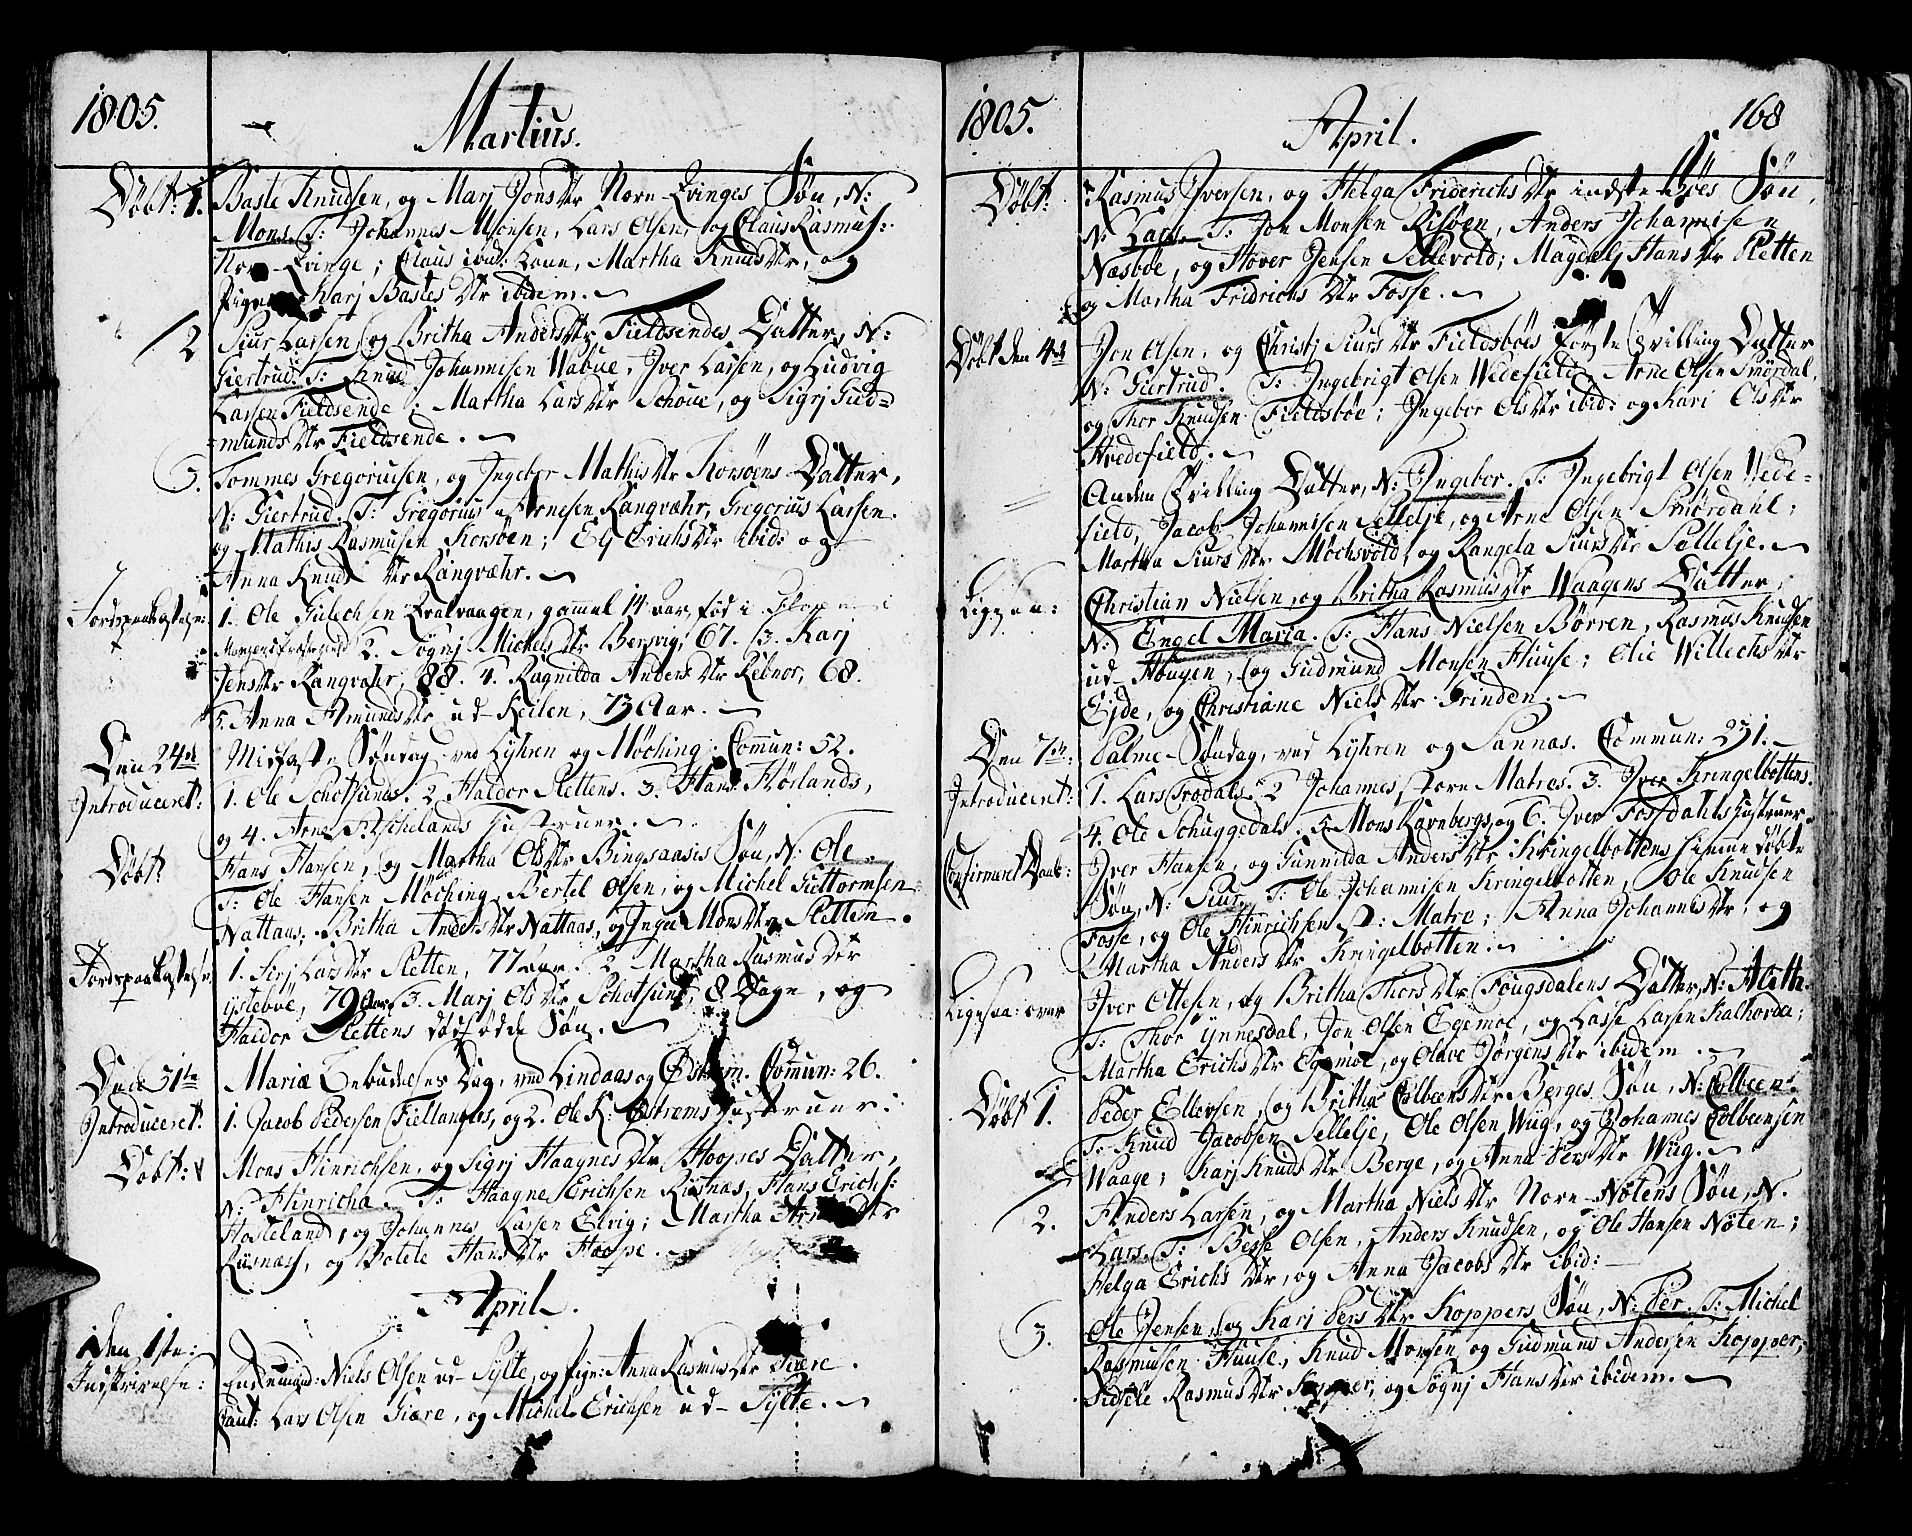 1805. Martius.
Døbt: 1. Baste Knudsen, og Marj JonsDtr Nore Evinges Søn, N:
Mons. T: Johannes Monsen, Lars Olsen, og Claus Rasmus:
Evinge; Claus ibid: Martha KnudsDtr, og
Pige Karj BastesDtr ibidem.
2 Siur Larsen, og Britha AndersDtr Fieldsendes Datter, N:
Giertrud. T: Knud Johannisen Wabue, Iver Larsen, og Ludvig
Larsen Fieldsende; Martha LarsDtr Schoue, og Sigrj Gud=
mundsDtr Fieldsende.
3. Tommes Gregoriusen, og Ingebor MathisDtr Korsøens Datter,
N: Giertrud. T: Gregorius Arnesen Rangvæhr, Gregorius Larsen
og Mathis Rasmusen Korsøen; Eli ErichsDtr ibid: og
Anna KnudsDtr Rangvæhr.
Jordspaakastelse: 1. Ole Gulechsen gammel 14 aar, fød i
2. Søgnj MichelsDtr Bersvig, 67. 3. Karj
JensDtr Rangvæhr, 88. 4. Ragnilda AndersDtr Rebnor, 68.
5. Anna AmundsDtr ud-Keilen, 73 Aar.
Den 24de Midfaste Søndag ved Lyhren og Møching. Commun: 52.
Introduceret: 1. Ole Schotsunds. 2 Haldor Slettens. 3. Hans Hørlands,
og 4. Arne Hustruer.
Døbt Hans Hansen, og Martha OlsDtr Bingsaasis Søn, N: Ole.
T: Ole Hansen Møching, Bertel Olsen, og Michel Guttormsen
Nattaas; Britha AndersDtr Nattaas, og Inga MonsDtr Sletten.
Jordspaakastelse 1. Sirj LarsDtr Sletten, 77 aar. 2 Martha RasmusDtr
ysleboe, 79 Aar. 3. Marj OlsDtr Schotsund, 8 Dage, og
Haldor Slettens dødfødde Søn.
Den 31te Mariæ Bebudelses Dag, ved Lindaas og Østrem. Commun: 26.
Introduceret. 1. Jacob Pedersen Fiellangers, og 2. Ole K: Østrems Hustruer:
Døbt: Mons Hinrichsen, og Sigrj HaagnesDtr Hoopes Datter,
N: Hinricha. T: Haagne Erichsen Risnæs, Hans Erichs:
Hosteland, og Johannes Larsen Elvig; Martha Dtr
Riisnæss, og Botele HansDtr Hoope.
April.
Den 1ste: Niels Olsen ud-Sylte, og Pige: Anna RasmusDtr Giære.
Indskrivelse: Caut: Lars Olsen Giære, og Michel Erichsen ud-Sylte.
1805. April. 168
Døbt: Rasmus Iversen, og Helga FriderichsDtr indste Bøes Søn,
N: Lars. T: Jon Monsen Risøen, Anders Johannisen
Næsboe, og Hover Jensen Sellevold; Magdelj HansDtr Sletten
og Martha FridrichsDtr Fosse.
Døbt den 4de Jon Olsen, og Christj SiursDtr Fieldsbøes første Tvilling Datter
N: Giertrud. T: Ingebrigt Olsen Wedefield, Arne Olsen Smørdal,
og Thor Knudsen Fieldsbøe; Ingebor OlsDtr ibid: og Kari OlsDtr
Hvedefield.
Anden Tvilling Datter, N: Ingebor. T: Ingebrigt Olsen Vede=
field, Jacob Johannisen Sellelje, og Arne Olsen Smørdahl;
Martha SiursDtr Møchsvold, og Rangela SiursDtr Sellelje.
Christian Nielsen, og Britha RasmusDtr Waagens Datter,
N: Engel Maria. T: Hans Nielsen Børren, Rasmus Knudsen
ud-Hougen, og Gudmund Monsen Huuse; Olie WillechsDtr
Eide, og Christiane NielsDtr Grinden.
Den 7de: Palme-Søndag, ved Lyhren og Sannas. Commun: 271.
Introduceret: 1. Lars Trodals. 2 Johannes store Matres. 3. Iver Kringelbottens.
4. Ole Schuggedals. 5 Mons Ravnbergs, og 6. Iver Fossdahls Hustruer.
Confirmeret Daab: Iver Hansen, og Gunnilda AndersDtr Kringelbottens hiemmedøbte
Søn, N: Siur. T: Ole Johannisen Kringelbotten, Ole Knudsen
Fosse, og Ole Hinrichsen St: Matre; Anna JohannisDtr, og
Martha AndersDtr Kringelbotten.
Ligesaa: over Iver Ottesen, og Britha ThorsDtr Fougsdalens Datter, N: Aleth.
T: Thor Ynnesdal, Jon Olsen Egemoe, og Lasse Larsen Kalhordei;
Martha ErichsDtr Egemoe, og Olave JørgensDtr ibidem.
Døbt 1. Peder Ellevsen, og Britha ColbeensDtr Berges Søn, N: Colbeen.
T: Knud Jacobsen Sellelje, Ole Olsen Wiig, og Johannes Colbeensen
Waage; Karj KnudsDtr Berge, og Anna PersDtr Wiig.
2. Anders Larsen, og Martha NielsDtr Nore-Nøtens Søn, N.
Lars. T: Besse Olsen, Anders Knudsen, og Ole Hansen Nøten;
Helga ErichsDtr, og Anna JacobsDtr ibid:
3. Ole Jensen, og Karj PersDtr Koppers Søn, N: Per. T: Michel
Rasmusen Huuse, Knud Monsen, og Gudmund Andersen Kopper;
Sidsele RasmusDtr Kopper, og Søgnj HansDtr ibidem.